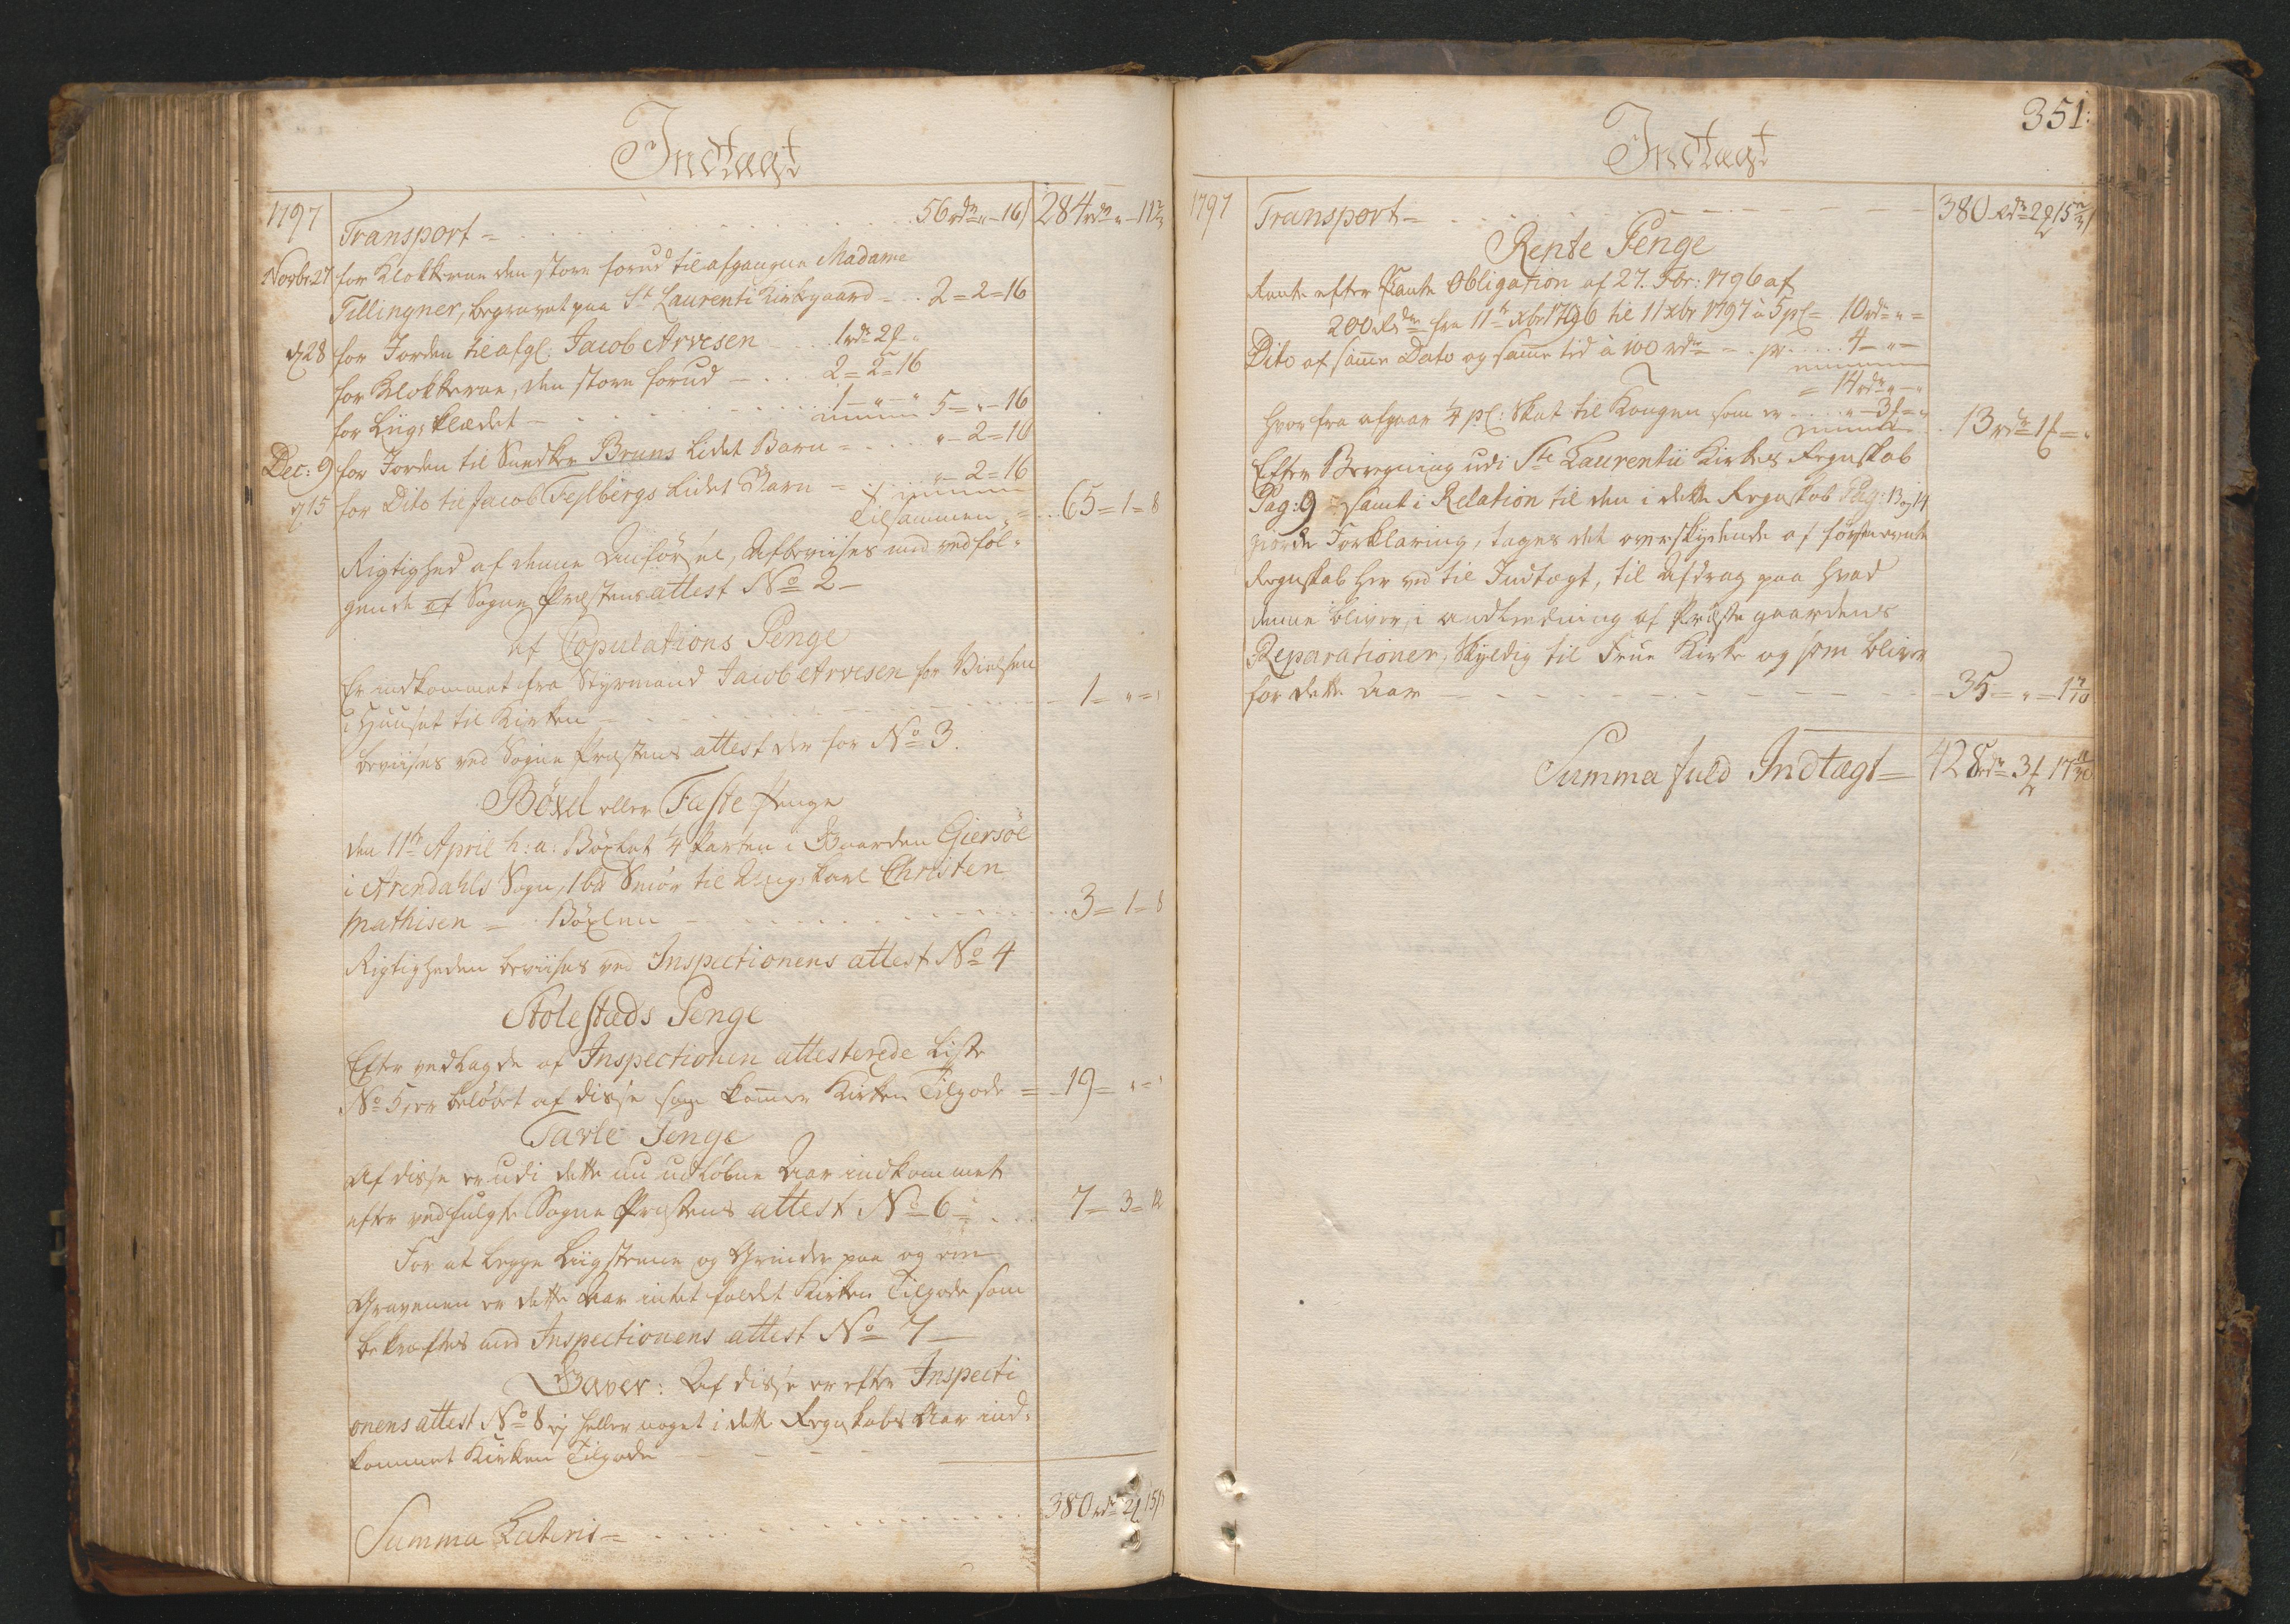 Indtægt
1797
Transport = 56 rdr " – 16 ſ 284 rdr " – 11
Novbr 27 for Klokkerne den store forud til afgangne Madame
Tillingner, begravet paa St Laurenti Kirkegaard – 2 = 2 = 16
d 28 for Jorden til afgl: Jacob Arvesen 1 rdr 2 "
for Klokkerne, den store forud – 2 = 2 = 16
for Liigklædet – 1 – " – " 5 = " – 16
Dec: 9 for Jorden til Snedker Bruns lidet Barn = " – 2 = 16
d 15 for Dito til Jacob Feslbergs lidet Barn – " – 2 = 16
Tilsammen = 65 = 1 = 8
Rigtighed af denne Anførsel, Afbeviises med vedføl-
gende af Sogne Præstens attest No 2 –
af Copulations Penge
Er indkommet fra Styrmand Jacob Arvesen for Vielsen
i Huuset til Kirken – 1 – " = "
beviises ved Sogne Præstens attest der for No 3.
Böxel eller Fæste Penge
den 11te April h: a: Böxlet 1/4 Parten i Gaarden Giersöe
i Arendahls Sogn, 1 bd Smör til Ungkarl Christen
Mathisen = Böxlen – 3 = 1 = 8
Rigtigheden beviises ved Inspectionens attest No 4
Stolestads Penge
Efter vedlagde af Inspectionen attesterede Liste
No 5, er belöbet af disse som kommer Kirken Tilgode = 19 = " = "
Tavle Penge
Af disse er udi dette nu udløbne Aar indkommet
efter vedfulgte Sogne Præstens attest No 6 = 7 = 3 = 12
For at legge Liigsteene og Grinder paa og om
Gravene er dette Aar intet faldet Kirken Tilgode som
bekræftes med Inspectionens attest No 7 –
Gaver: Af disse er efter Inspecti
onens attest No 8 ej heller noget i dette Regnskabs Aar ind-
kommet Kirken Tilgode –
Summa Lateris = 380 rdr 2 15
351.
Indtægt
1797
Transport = 380 Rdr 2 15
Rente Penge
Rente efter Pante Obligation af 27. Fbr: 1796 af
200 Rdr fra 11te Xbr 1796 til 11 Xbr 1797 à 5 pC = 10 rdr " =
Dito af samme Dato og samme tid à 100 rdr – 4 – " –
= 14 rdr " – "
hvor fra afgaar 1/4 pC: Skat til Kongen som er " – 3 = " 13 rdr 1 = "
Efter Beregning udi Ste Laurentii Kirkes Regnskab
Pag: 9 – samt i Relation til den i dette Regnskab Pag: 13 og 14
giorde Forklaring, tages det overskydende af førnævnte
Regnskab her ved til Indtægt, til Afdrag paa hvad
denne bliver, i andledning af Præste gaardens
Reparationer, skyldig til Frue Kirke og som bliver
for dette Aar – 35 = " – 1
Summa fuld Indtægt = 428 rdr 3 17